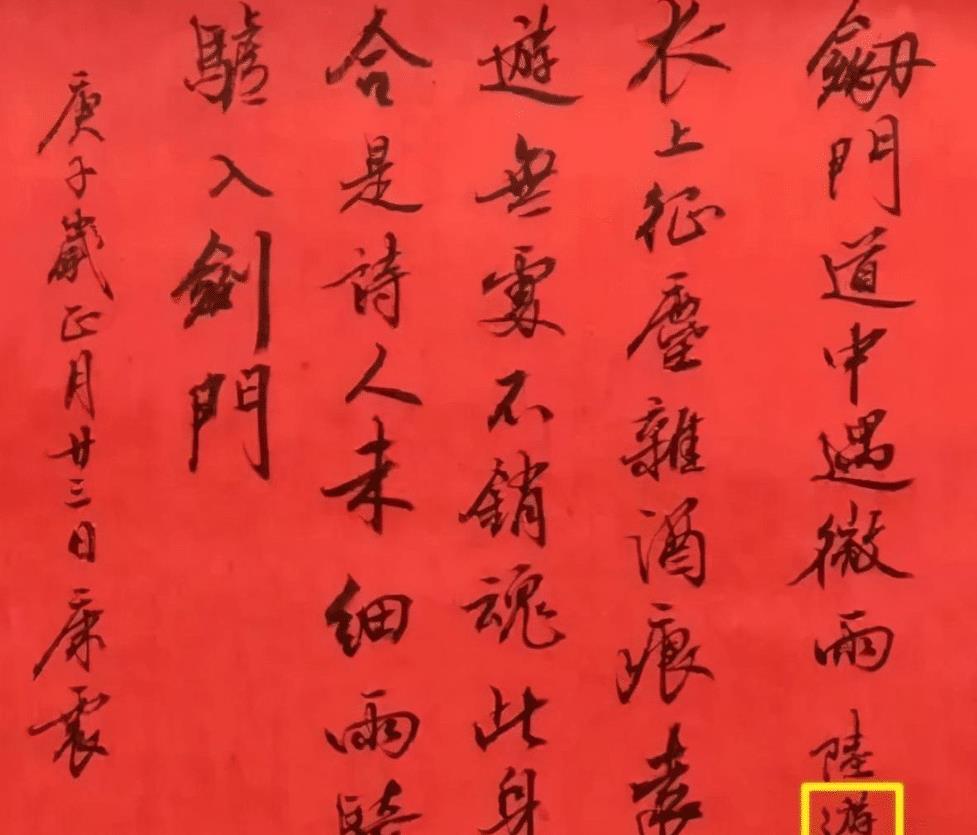 劒門道中遇微雨 陸游
衣上征塵雜酒痕遠
遊無處不銷魂此身
合是詩人未細雨騎
驢入劍門
庚子歲正月廿三日康震